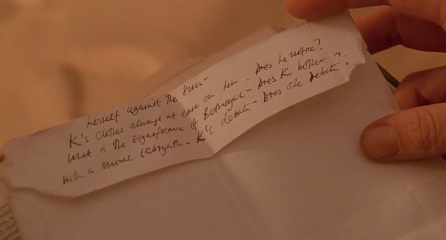 herself against the sun -
K's clothes always at ease on him. Does he notice?
What is the significance of Betrayal - Does K bother
with a moral labyrinth - K's debate - Does she debate?